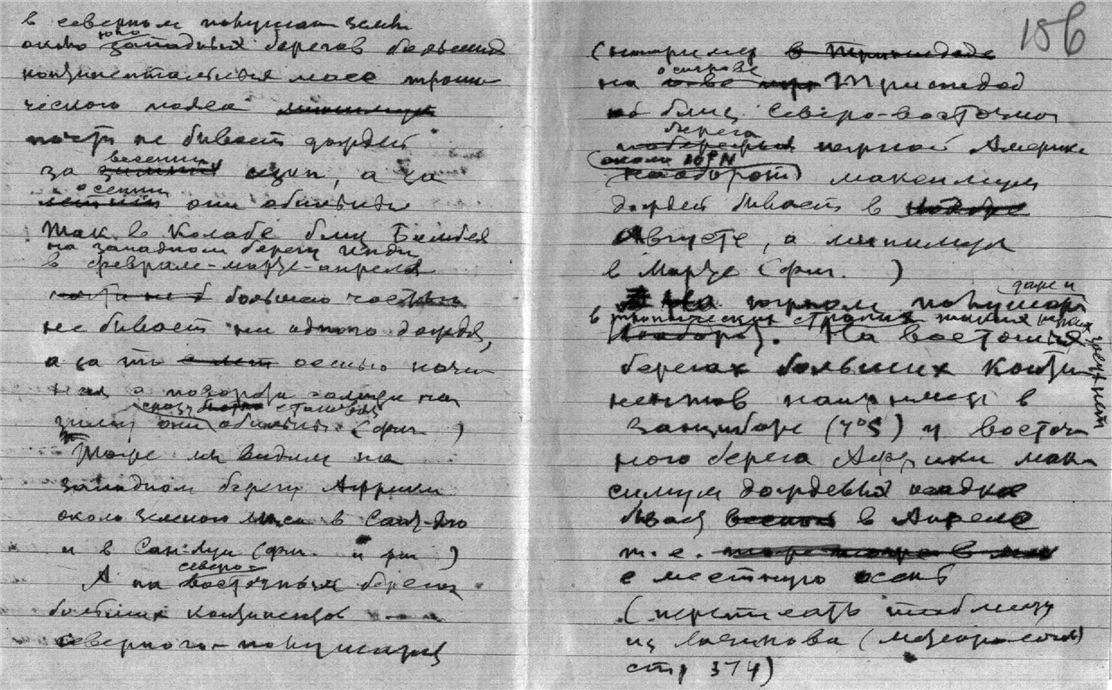 в северном полушарии
около юго западных берегов больших
континентальных масс тропи-
ческого пояса
почти не бывает дождей
за весенний сезон, а за
осенний они обильны
Так в Колабе близ Бомбея
на западном берегу Индии
в феврале-марте-апреле
большею частью
не бывает ни одного дождя,
а за то осенью начи-
ная с поворота солнца на
зиму они сразу становятся обильны (фиг. )
Тоже мы видим на
западном берегу Африки
около зеленого мыса в
и в Сан-Луи (фиг. и фиг )
А на северо-восточных берегах
больших континентов
северного полушария
186
(например в Тринидаде
на острове Тринидад
близ Северо-восточного
берега южной Америки
(около 10°N)
наоборот) максимум
дождей бывает в
Августе, а минимум
в Марте (фиг. )
На южном полушарии
в тропических странах
наоборот). На восточных
берегах больших Конти-
нентов например в
Занцибаре (7°S) у восточ-
ного берега Африки мак-
симум дождевых осадков
бывает в Апреле
т.е.
в местную осень
(переписать таблицу
из (метеорология)
стр 374)